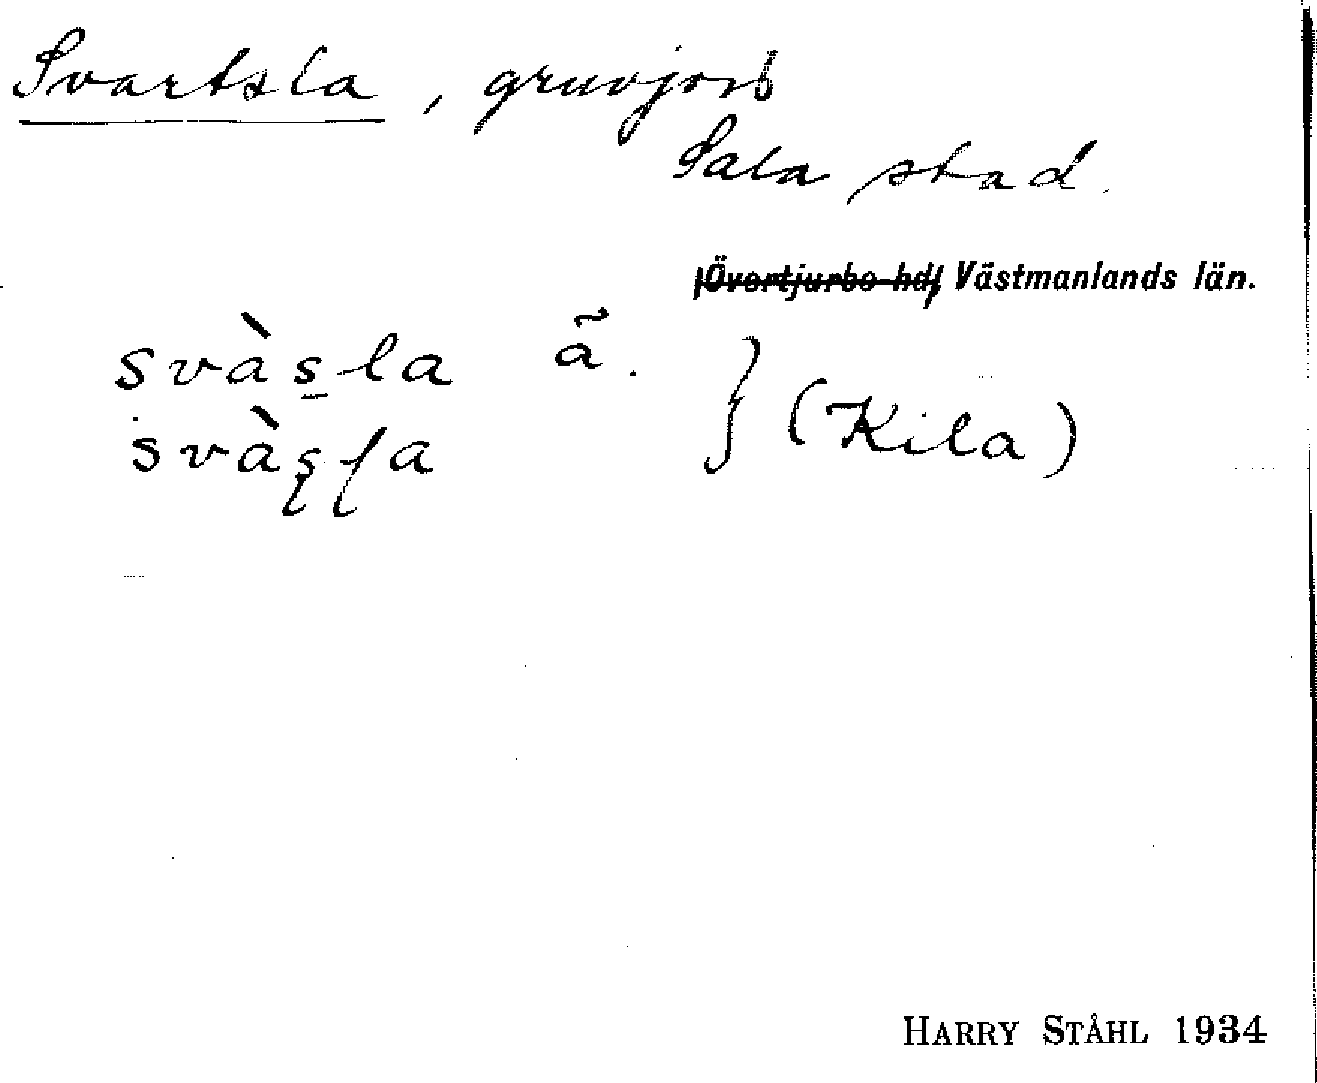 Svartsla, gruvjord
Sala stad.
Övertjurbo hd, Västmanlands län.
svàs̲la ã.
svàs̨ſa } (Kila)
HARRY STÅHL 1934